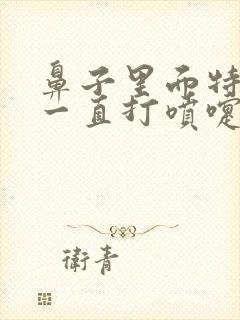 鼻子里面特
一直打噴嚏
衛青